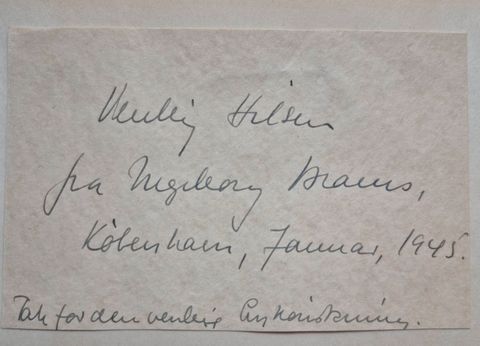 Venlig Hilsen
fra Ingeborg Brams,
København, Januar, 1945.
Tak for den venlige Lykønskning.